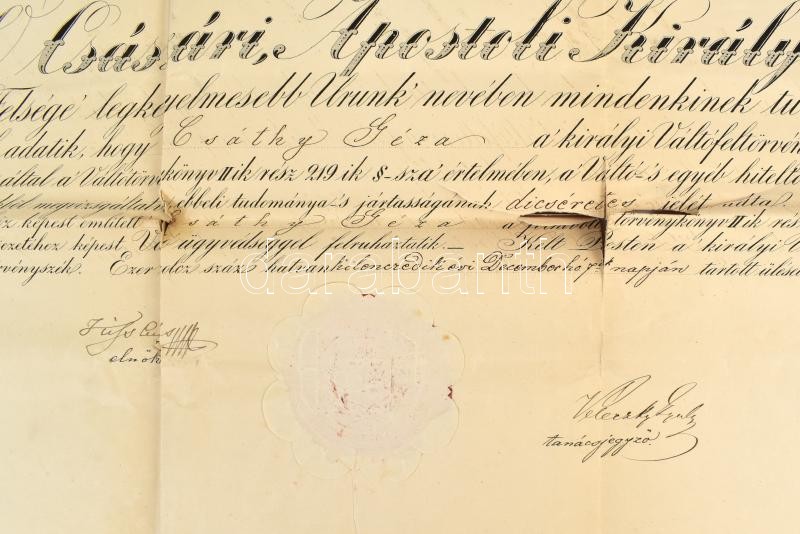 Császári, Apostoli Király
Felsége' legkegyelmesebb Urunk' nevében mindenkinek tu
adatik, hogy Csáthy Géza a' királyi Váltófeltörvén
általa a Váltótörvénykönyv II ik rész 219 ik §-sza' értelmében, a' Váltó-'s egyéb hiteltö
megvizsgáltat ebbeli tudománya-'s jártasságának dicséretes jelét adta
képest említett Csáthy Géza a' törvénykönyv II ik rés
képest Vá ügyvédséggel felruháztatik._ Kelt Pesten a' királyi V
rvényszék. Ezer száz hatvankilenczedik évi December hó 7ik napján tartott ülésé
darabanth
elnök
Veleczky Gyula
tanácsjegyző.